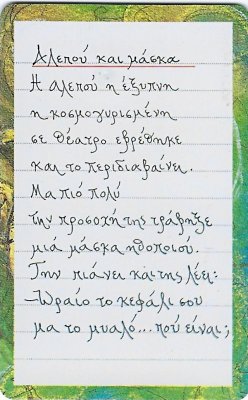 Αλεπού και μάσκα
Η αλεπού η έξυπνη
η κοσμογυρισμένη
σε θέατρο ευρέθηκε
και το περιδιαβαίνει.
Μα πιό πολύ
την προσοχή της τράβηξε
μιά μάσκα ηθοποιού.
Την πιάνει και της λέει:
-Ωραίο το κεφάλι σου
μα το μυαλό... πού είναι;